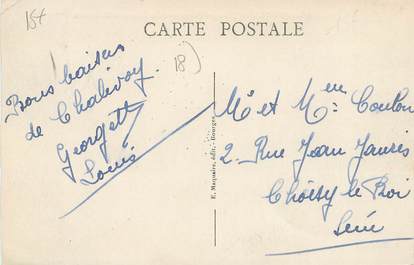 15f
CARTE POSTALE
18)
Bons baisers
de Chalivoy.
Georgett
Louis
E. Maquaire, édit., Bourges
Mr et Mme Coulon
2. Rue Jean Jaurès
Choisy le Roi
Seine